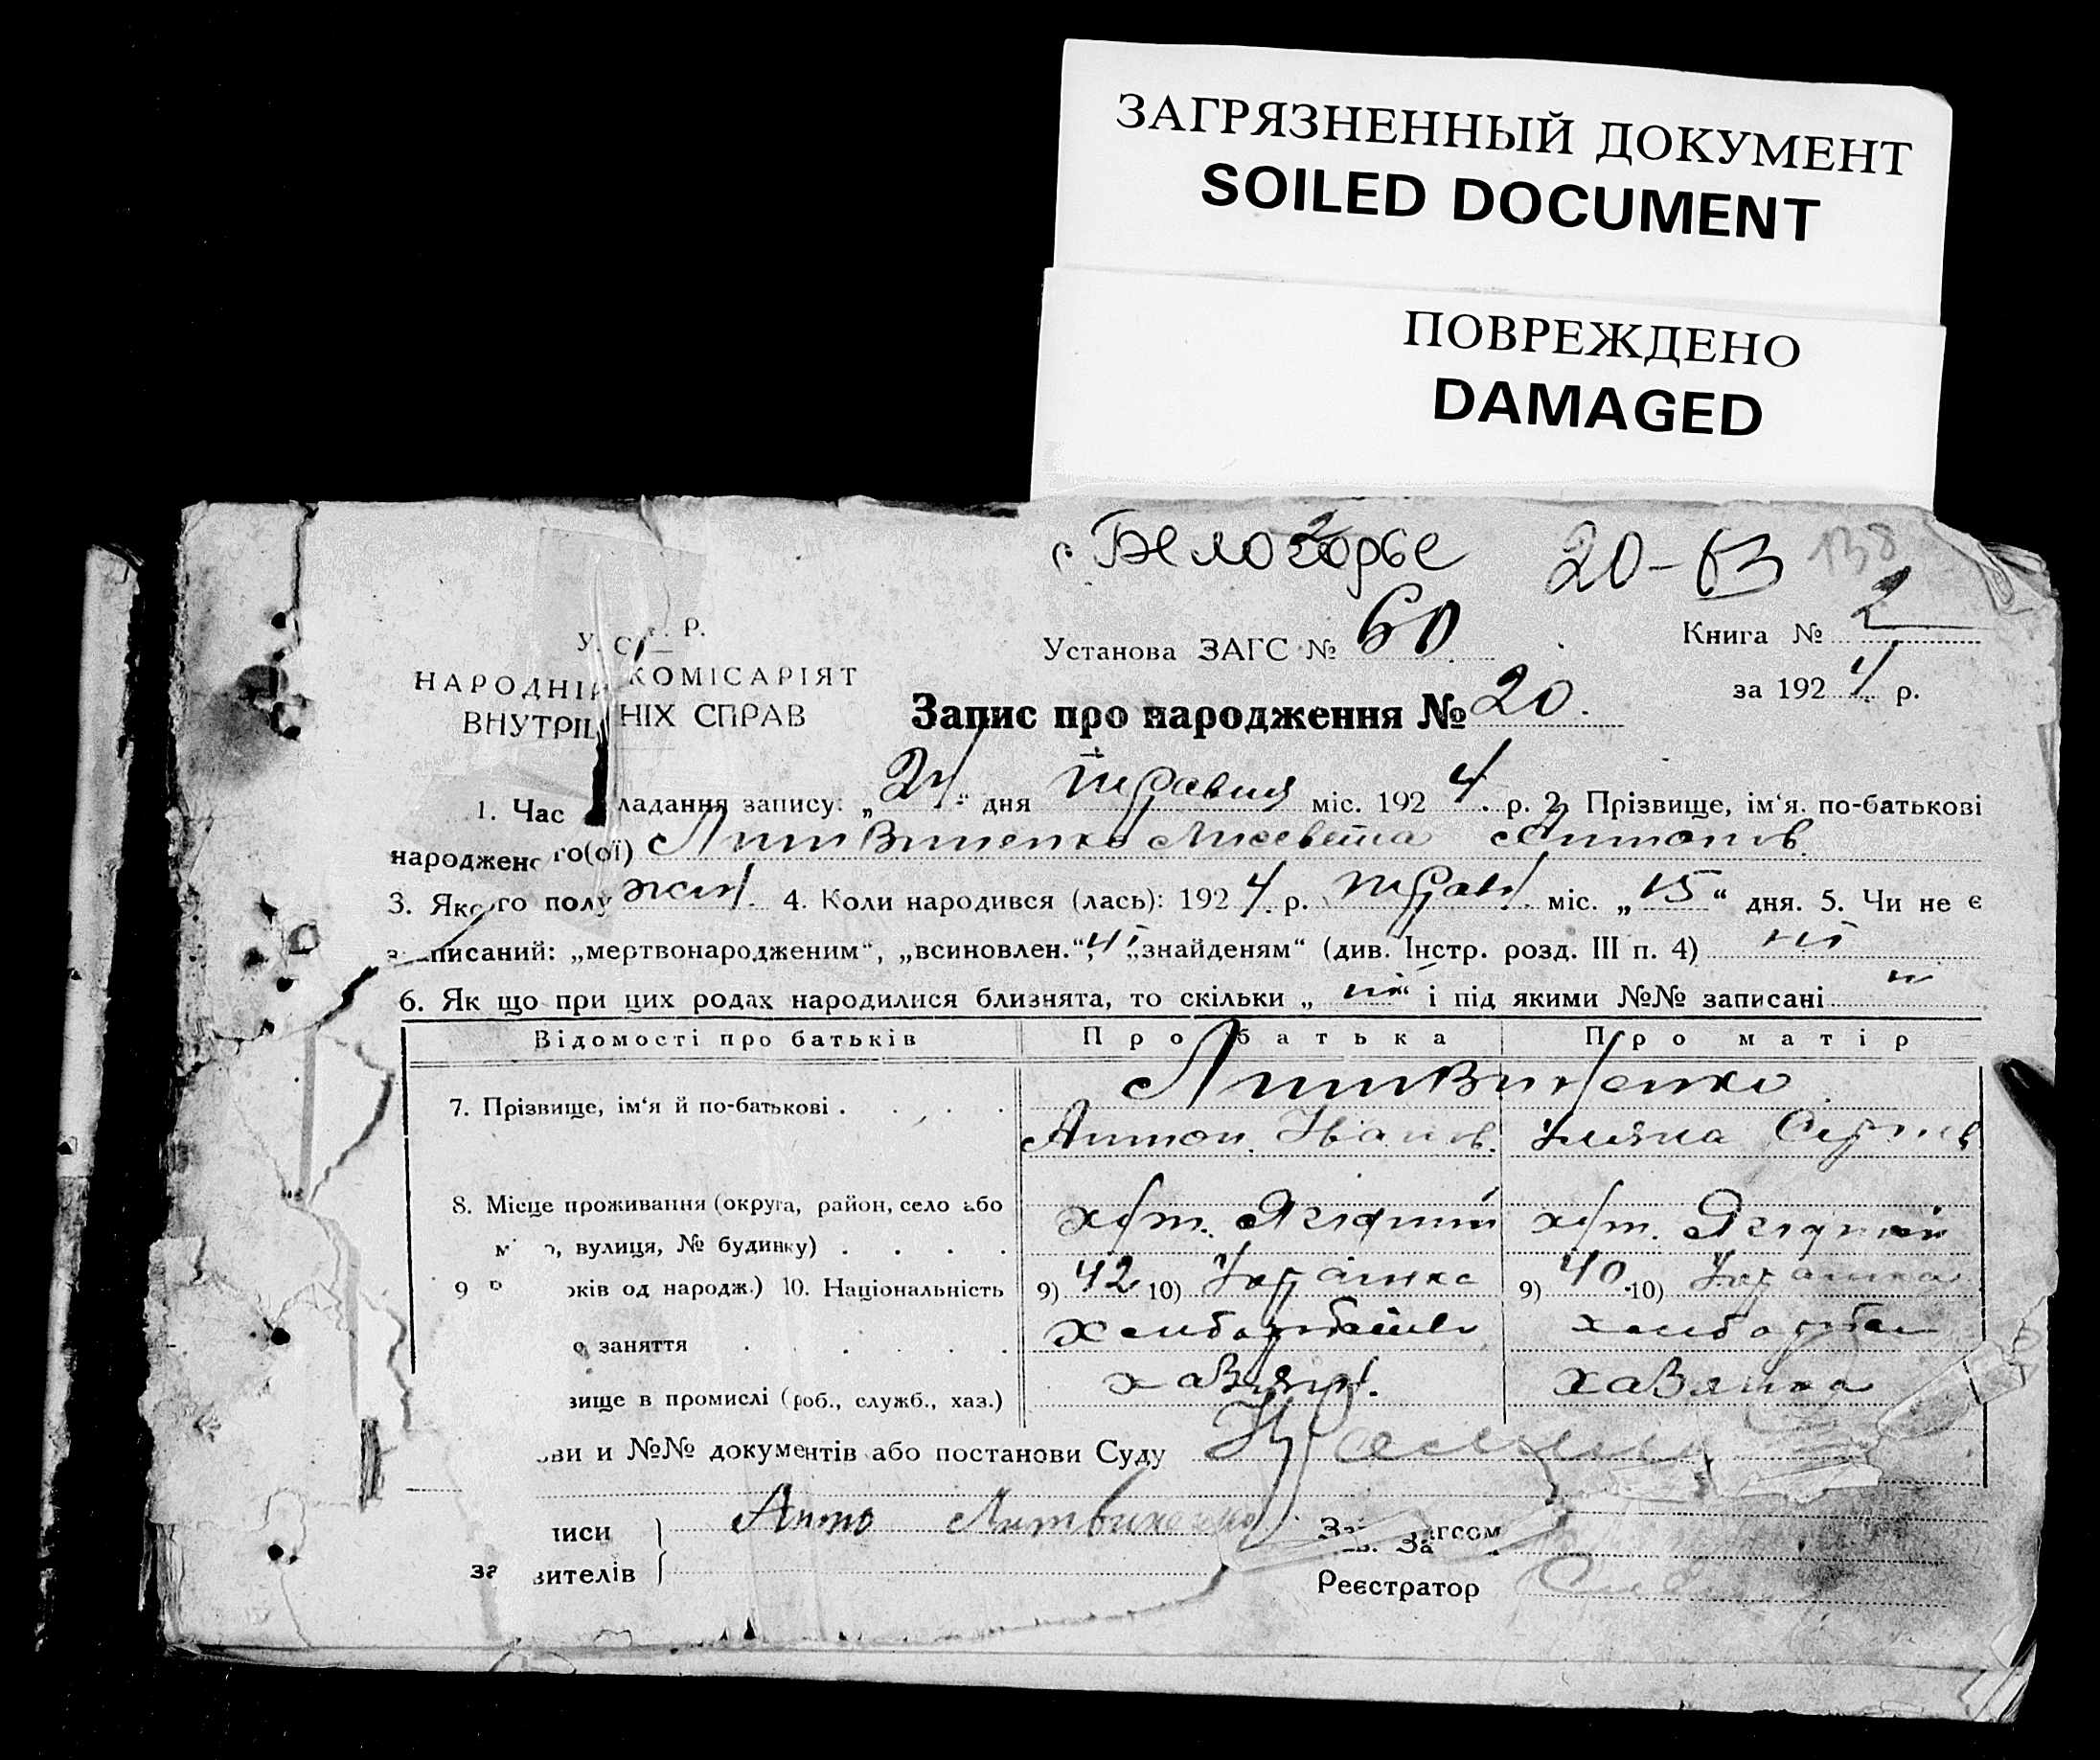 ЗАГРЯЗНЕННЫЙ ДОКУМЕНТ
SOILED DOCUMENT
ПОВРЕЖДЕНО
DAMAGED
с. Белогорье 20-63 138
У. С. Р.
НАРОДНІЙ КОМІСАРІЯТ
ВНУТРІШНІХ СПРАВ
Установа ЗАГС № 60
Книга № 2
за 1924 р.
Запис про народження № 20.
1. Час складання запису: „24“ дня травня міс. 1924. р. 2. Прізвище, ім‘я. по-батькові
народженого(ої) Литвиненко Лисевета Антонів.
3. Якого полу жін. 4. Коли народився (лась): 1924. р. трав. міс. „15“ дня. 5. Чи не є
записаний: „мертвонародженим“, „всиновлен.“, „знайденям“ (див. Інстр. розд. III п. 4) ні
6. Як що при цих родах народилися близнята, то скільки „ні“ і під якими №№ записані "
Відомості про батьків Про батька Про матір
7. Прізвище, ім‘я й по-батькові . . . . Литвиненко
Антон Іванов. Уляна
8. Місце проживання (округа, район, село або
хут. хут.
, вулиця, № будинку) . . . .
9 років од народж.) 10. Національність 9) 42 10) Українец 9) 40 10) Українка
заняття . . . . . хлиборобство
вище в промислі (роб., служб., хаз.) хазяїн. хазяйка
ви и №№ документів або постанови Суду
писи Антон Литвиненко
Загсом
заявителів
Реєстратор